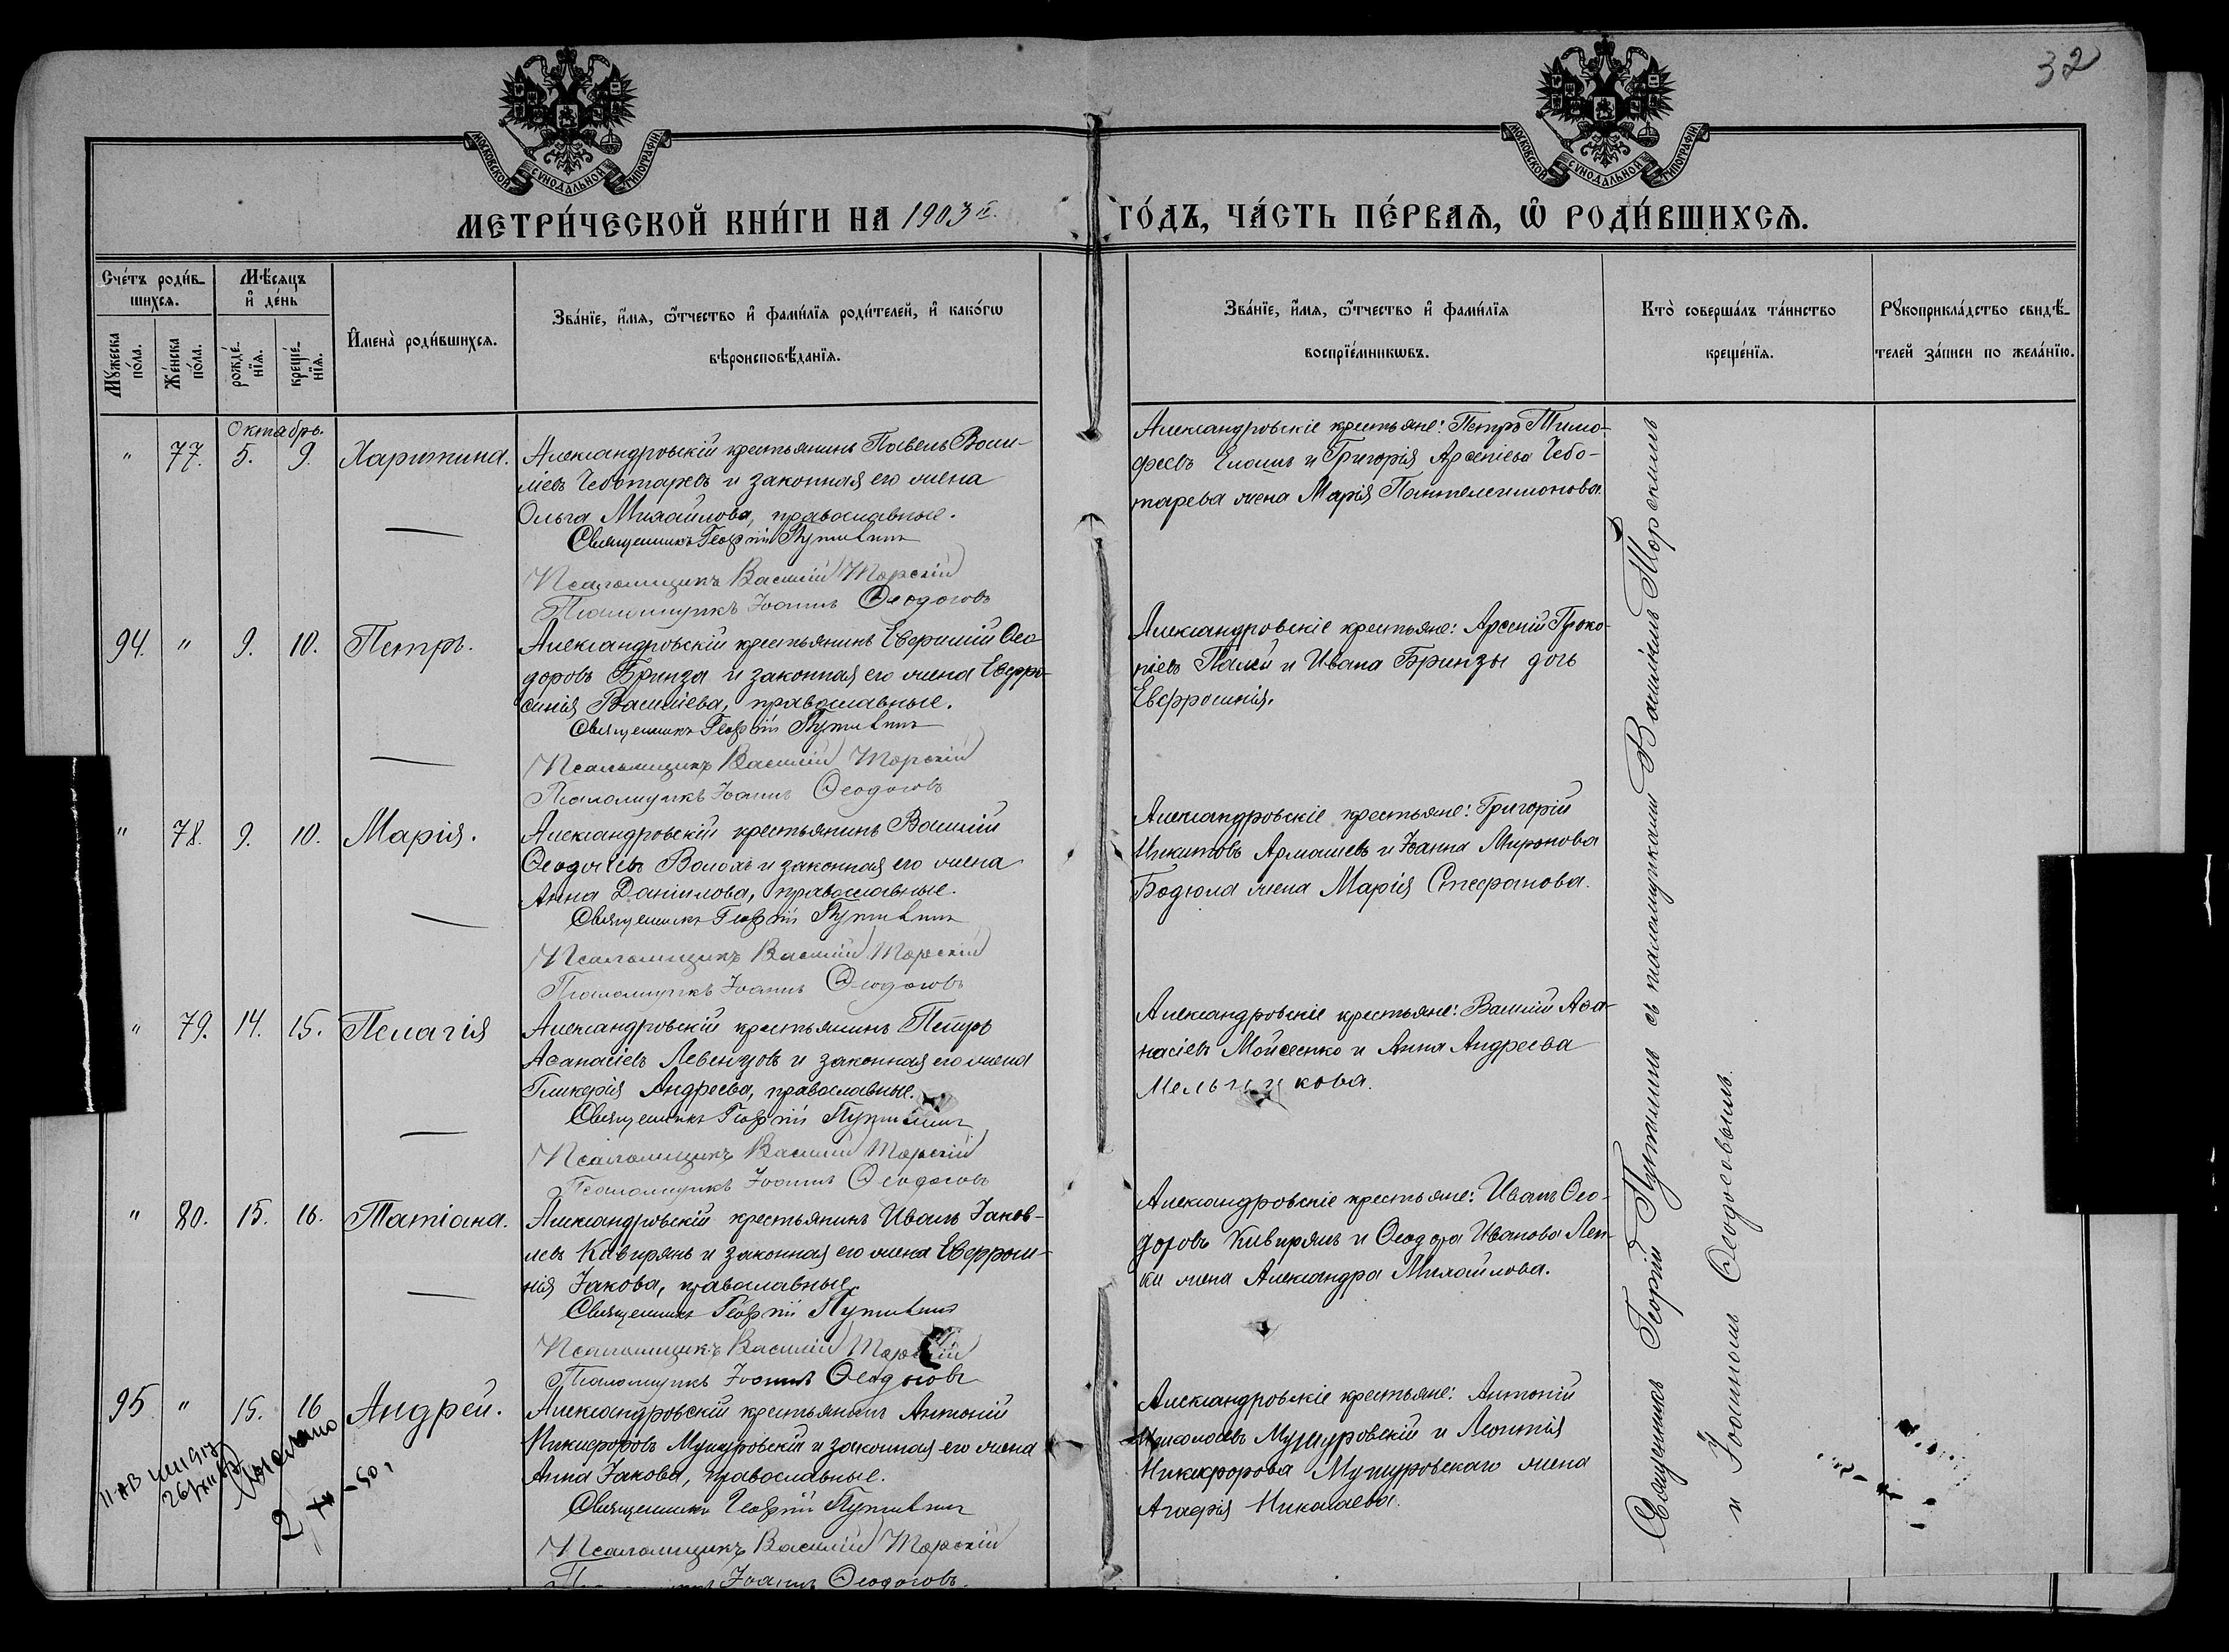 32
МОСКОВСКОЙ СѴНОДАЛЬНОЙ ТИПОГРАФІИ
МОСКОВСКОЙ СѴНОДАЛЬНОЙ ТИПОГРАФІИ
МЕТРИ́ЧЕСКОЙ КНИ́ГИ НА 1903й. ГО́ДЪ, ЧА́СТЬ ПЕ́РВАѦ, Ѡ РОДИ́ВШИХСѦ.
Сче́тъ роди́в-
шихсѧ.
Мꙋжеска по́ла.
Же́нска по́ла.
Мѣ́сѧцъ
и҆ де́нь
рожде́-
нїѧ.
креще́-
нїѧ.
И҆мена̀ роди́вшихсѧ.
Зва́нїе, и҆́мѧ, ѻ҆́тчество и҆ фами́лїѧ роди́телей, и҆ како́гѡ
вѣроисповѣ́данїѧ.
Зва́нїе, и҆́мѧ, ѻ҆́тчество и҆ фами́лїѧ
воспрїе́мникѡвъ.
Кто̀ соверша́лъ та́инство
креще́нїѧ.
Рꙋкоприкла́дство свидѣ́-
телей за́писи по жела́нїю.
Октябрь.
" 77. 5. 9. Харитина.
Александровскій крестьянинъ Павелъ Васи-
ліевъ Чеботаревъ и законная его жена
Ольга Михайлова, православные.
Священникъ Георгій Путилинъ
Псаломщикъ Василій Торскій
Псаломщикъ Іоаннъ Ѳеодосовъ
Александровскіе крестьяне: Петръ Тимо-
феевъ и Григорія Арсеніева Чебо-
тарева жена Марія Пантелеимонова.
94. " 9. 10. Петръ.
Александровскій крестьянинъ Евфимій Ѳео-
доровъ Бринза и законная его жена Евфро-
синія Васильева, православные.
Священникъ Георгій Путилинъ
Псаломщикъ Василій Торскій
Псаломщикъ Іоаннъ Ѳеодосовъ
Александровскіе крестьяне: Арсеній Проко-
піевъ Палій и Ивана Бринзы дочь
Евфросинія.
" 78. 9. 10. Марія.
Александровскій крестьянинъ Василій
Ѳеодосіевъ Волохъ и законная его жена
Анна Даніилова, православные.
Священникъ Георгій Путилинъ
Псаломщикъ Василій Торскій
Псаломщикъ Іоаннъ Ѳеодосовъ
Александровскіе крестьяне: Григорій
Никитовъ Армашевъ и Іоанна Миронова
Бодюла жена Марія Стефанова.
" 79. 14. 15. Пелагія
Александровскій крестьянинъ Петръ
Аѳанасіевъ Левенцовъ и законная его жена
Гликерія Андреева, православные.
Священникъ Георгій Путилинъ
Псаломщикъ Василій Торскій
Псаломщикъ Іоаннъ Ѳеодосовъ
Александровскіе крестьяне: Василій Аѳа-
насіевъ Мойсеенко и Анна Андреева
Мельникова.
" 80. 15. 16. Татіана.
Александровскій крестьянинъ Иванъ Іаков-
левъ Кивирянъ и законная его жена Евфроси-
нія Іакова, православные.
Священникъ Георгій Путилинъ
Псаломщикъ Василій Торскій
Псаломщикъ Іоаннъ Ѳеодосовъ
Александровскіе крестьяне: Иванъ Ѳео-
доровъ Кивирянъ и Ѳеодора Иванова Леп-
ки жена Александра Михайлова.
95 " 15. 16 Андрей.
Александровскій крестьянинъ Антоній
Никифоровъ Мушуровскій и законная его жена
Анна Іакова, православные.
Священникъ Георгій Путилинъ
Псаломщикъ Василій Торскій
Іоаннъ Ѳеодосовъ.
Александровскіе крестьяне: Антоній
Николаевъ Мушуровскій и Леонтія
Никифорова Мушуровскаго жена
Агафія Николаева.
Священникъ Георгій Путилинъ съ псаломщиками Василіемъ Торскимъ
и Іоанномъ Ѳеодосовымъ.